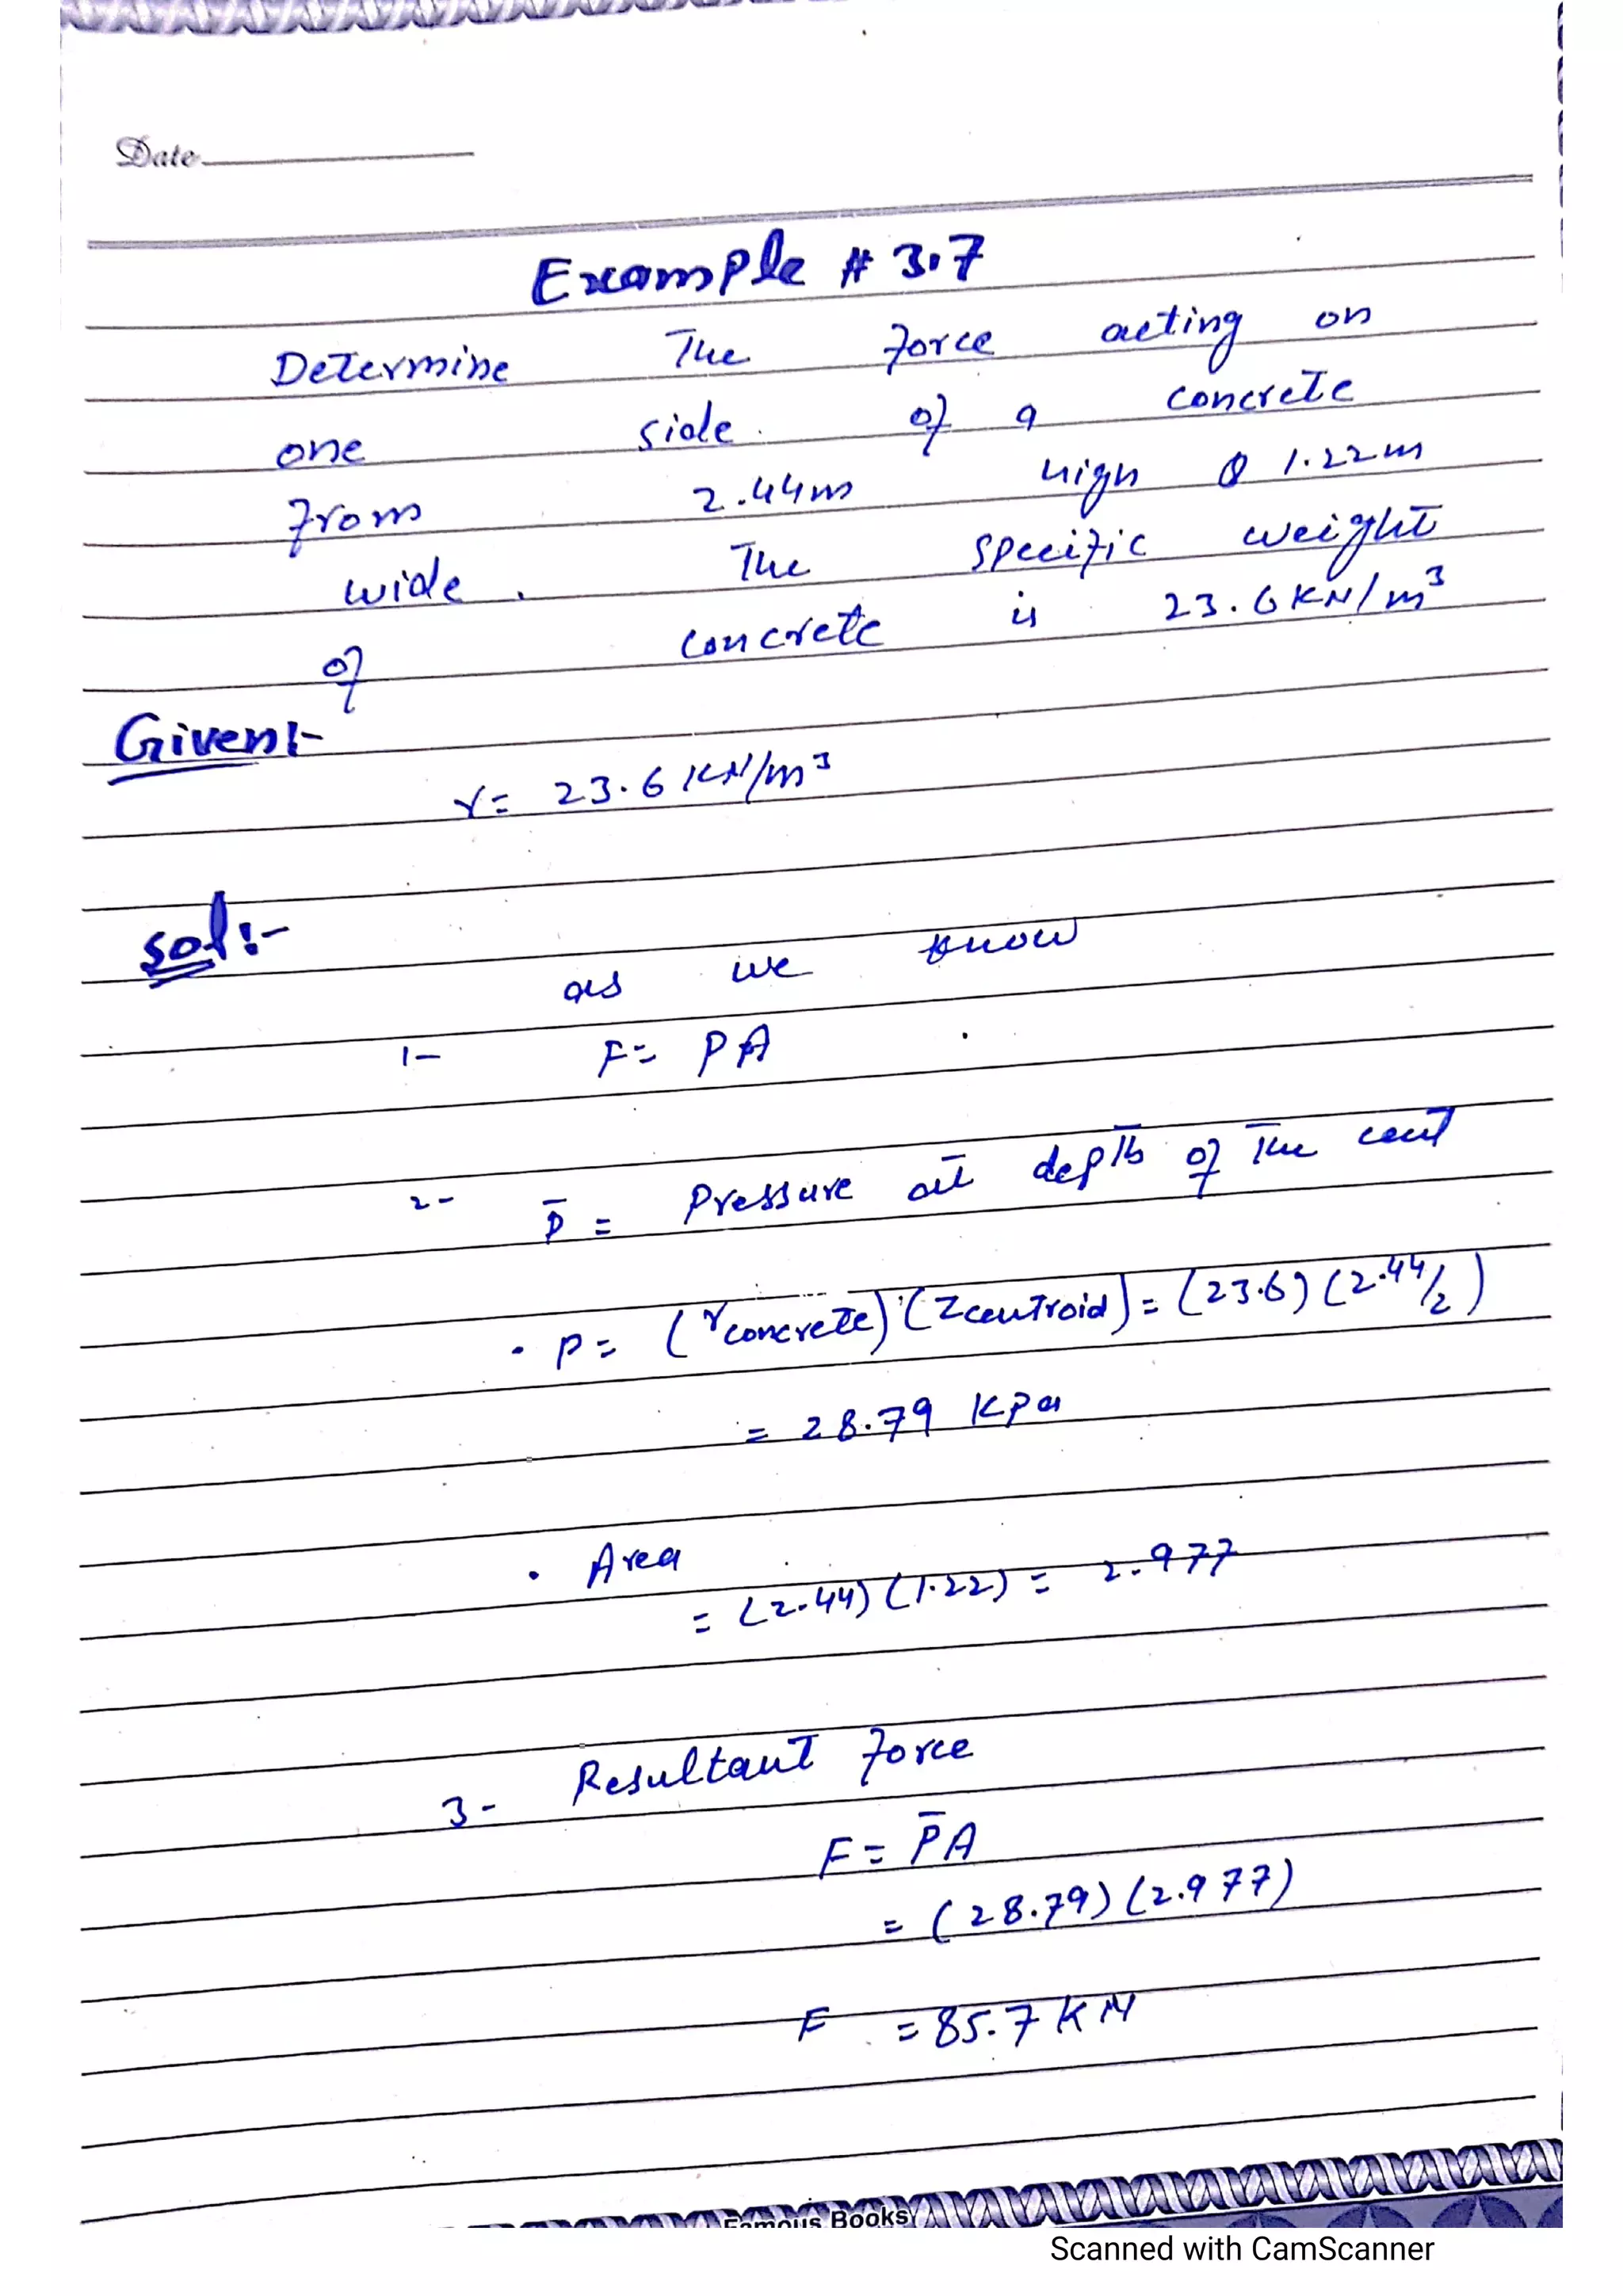 Date
Example # 3.7
Determine The force acting on
one side of a concrete
from 2.44m high & 1.22m
wide. The specific weight
of concrete is 23.6 KN/m³
Given:-
γ = 23.6 KN/m³
Sol:-
as we know
1- F = PA
2- P̄ = Pressure at depth of The cent
• P = (γconcrete)(Zcentroid) = (23.6)(2.44/2)
= 28.79 KPa
• Area
= (2.44)(1.22) = 2.977
3- Resultant force
F = P̄A
= (28.79)(2.977)
F = 85.7 KN
Famous Books
Scanned with CamScanner